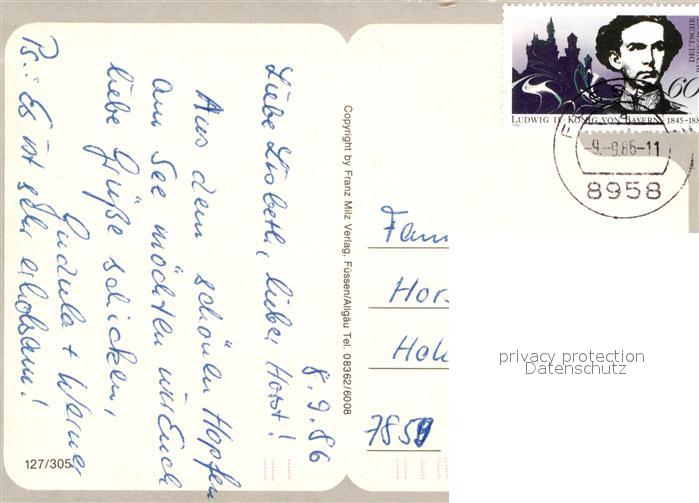 8.9.86
Liebe Lisbeth, lieber Horst!
Aus dem schönen Hopfen
am See möchten wir Euch
liebe Grüße schicken,
Gudula + Werner
Ps.: Es ist sehr erholsam!
127/305
Copyright by Franz Milz Verlag, Füssen/Allgäu Tel. 08362/6008
DEUTSCHE
60
LUDWIG II. KÖNIG VON BAYERN 1845-188
-9.-9.86-11
8958
Fam
Hors
Hoh
7859
privacy protection
Datenschutz